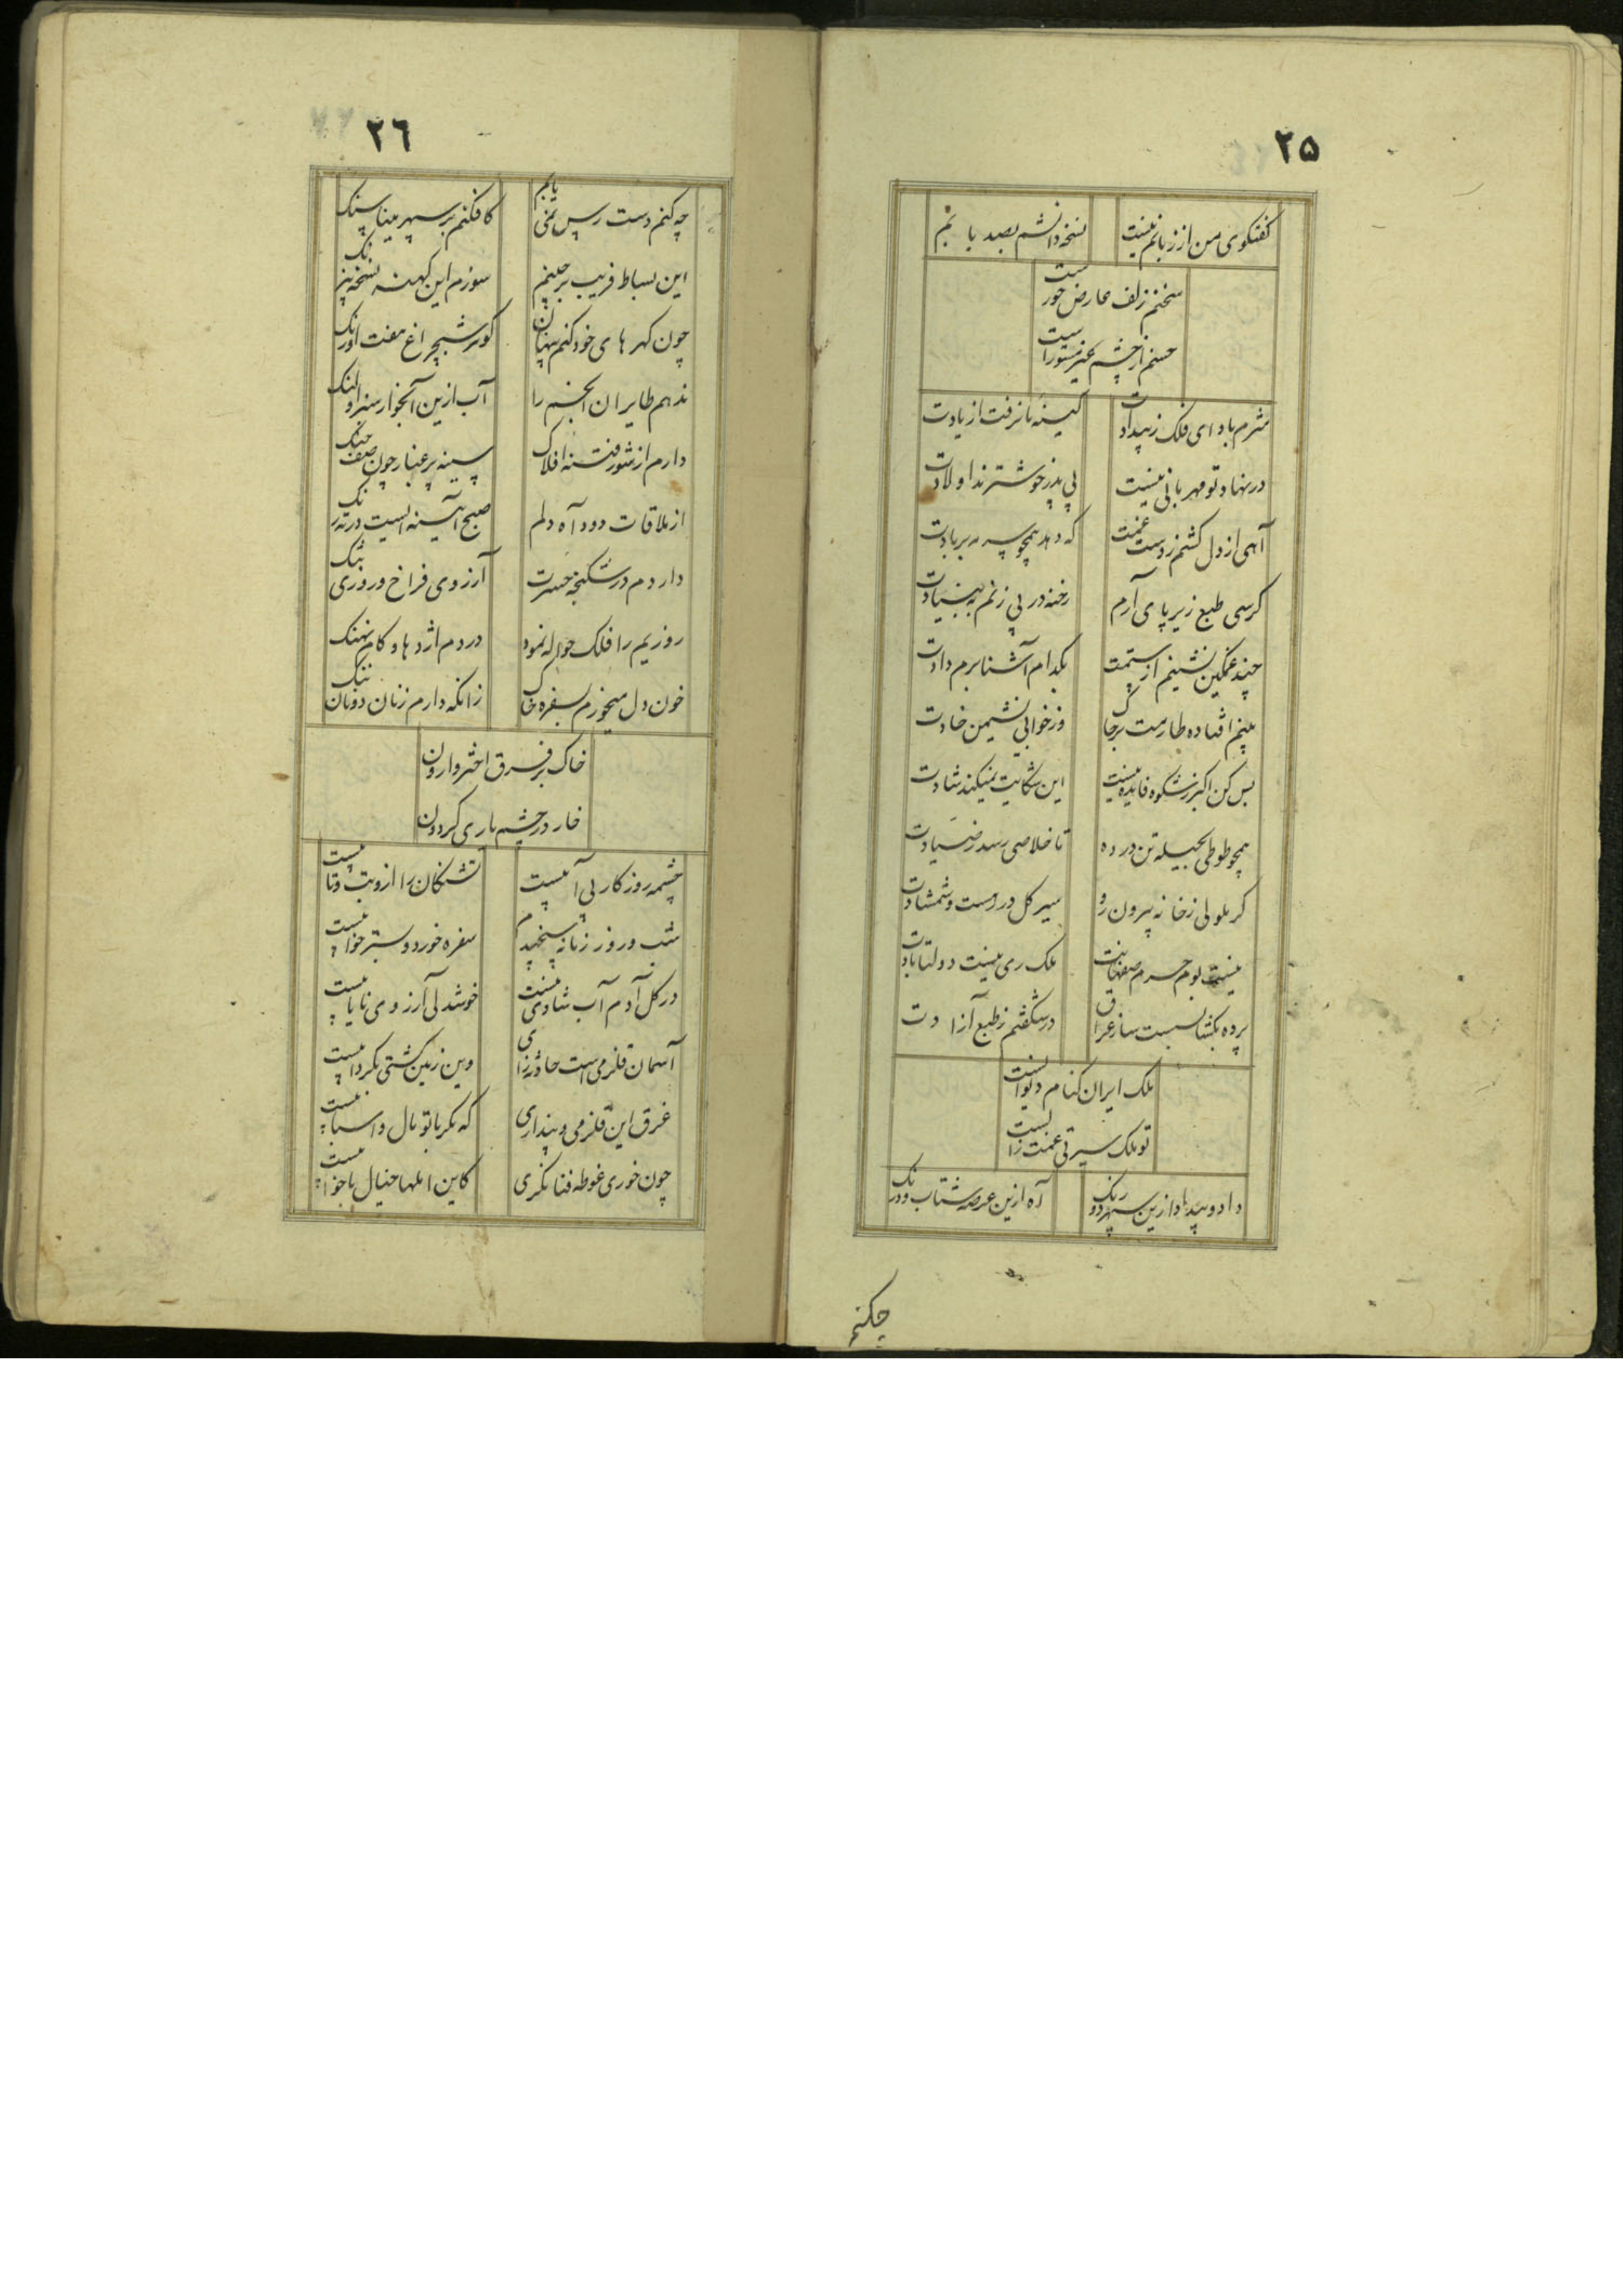 ۲۵
گفتگوی من از زبانم نیست نسخه دانشم بصد یا نم
سخنم زلف عارض حورست
حسنم از چشم غیر مستورست
شرم باد ای فلک ز بیدادت کینهٔ ما نرفت از یادت
در نهاد تو مهربانی نیست بی پدر خوشترند اولادت
آهی از دل کشم ز دست غمت که دهد همچو بر بادت
کرسی طبع زیر پای آرم رخنه در پی زنم به بنیادت
چند غمگین نشینم از ستمت بکدام آشنا برم دادت
بینم افتاده طارمت بر خاک وز خوابی نشیمن خادت
بس کن اکبر ز شکوه فایده نیست این شکایت نمیکند شادت
همچو طوطی بحیله تن در ده تا خلاصی رسد ز صیادت
کر بلولی ز خانه بیرون رو سیر کل در دست و شمشادت
نیست بوم حرم صفاهانت ملک ری نیست دولتابادت
پرده بکشا بسبت ساز عراق در شکفتم ز طبع آزادت
ملک ایران کنام دیوانست
تو ملک سیرتی غمت زانست
داد و بیداد ازین سپهر دو رنک آه ازین عرصه شتاب و درنک
چکنم
۲٦
چه کنم دست رس نمی یابم کافکنم بر سپهر مینا سنک
این بساط فریب برچینم سوزم این کهنه نسخه نیرنک
چون کهر های خود کنم پنهان کوهر شبچراغ هفت اورنک
ندهم طایران انجم را آب ازین آبخوار سبز النک
دارم از شور فتنه افلاک سینه پر غبار چون صف جنک
از ملاقات دود آه دلم صبح آیینه ایست در ته زنک
دار دم در شکنجه حسرت آرزوی فراخ و روزی تنک
روزیم را فلک حواله نمود در دم اژدها و کام نهنک
خون دل میخورم بسفره خاک زانکه دارم ز نان دونان ننک
خاک بر فرق اختر وارون
خار در چشم یاری کردون
چشمه روزکار بی آبیست تشنکان را ازو تب و تابیست
شب و روز زمانه سنجیدم سفره خورد و بستر خوابیست
در کل آدم آب شادی نیست خوشدلی آرزوی نایابیست
آسمان قلزمی است حادثه زای وین زمین کشتی بکردابیست
غرق این قلزمی و پنداری که مکر با تو مال و اسبابیست
چون خوری غوطه فنا نکری کاین املها خیال یا خوابیست